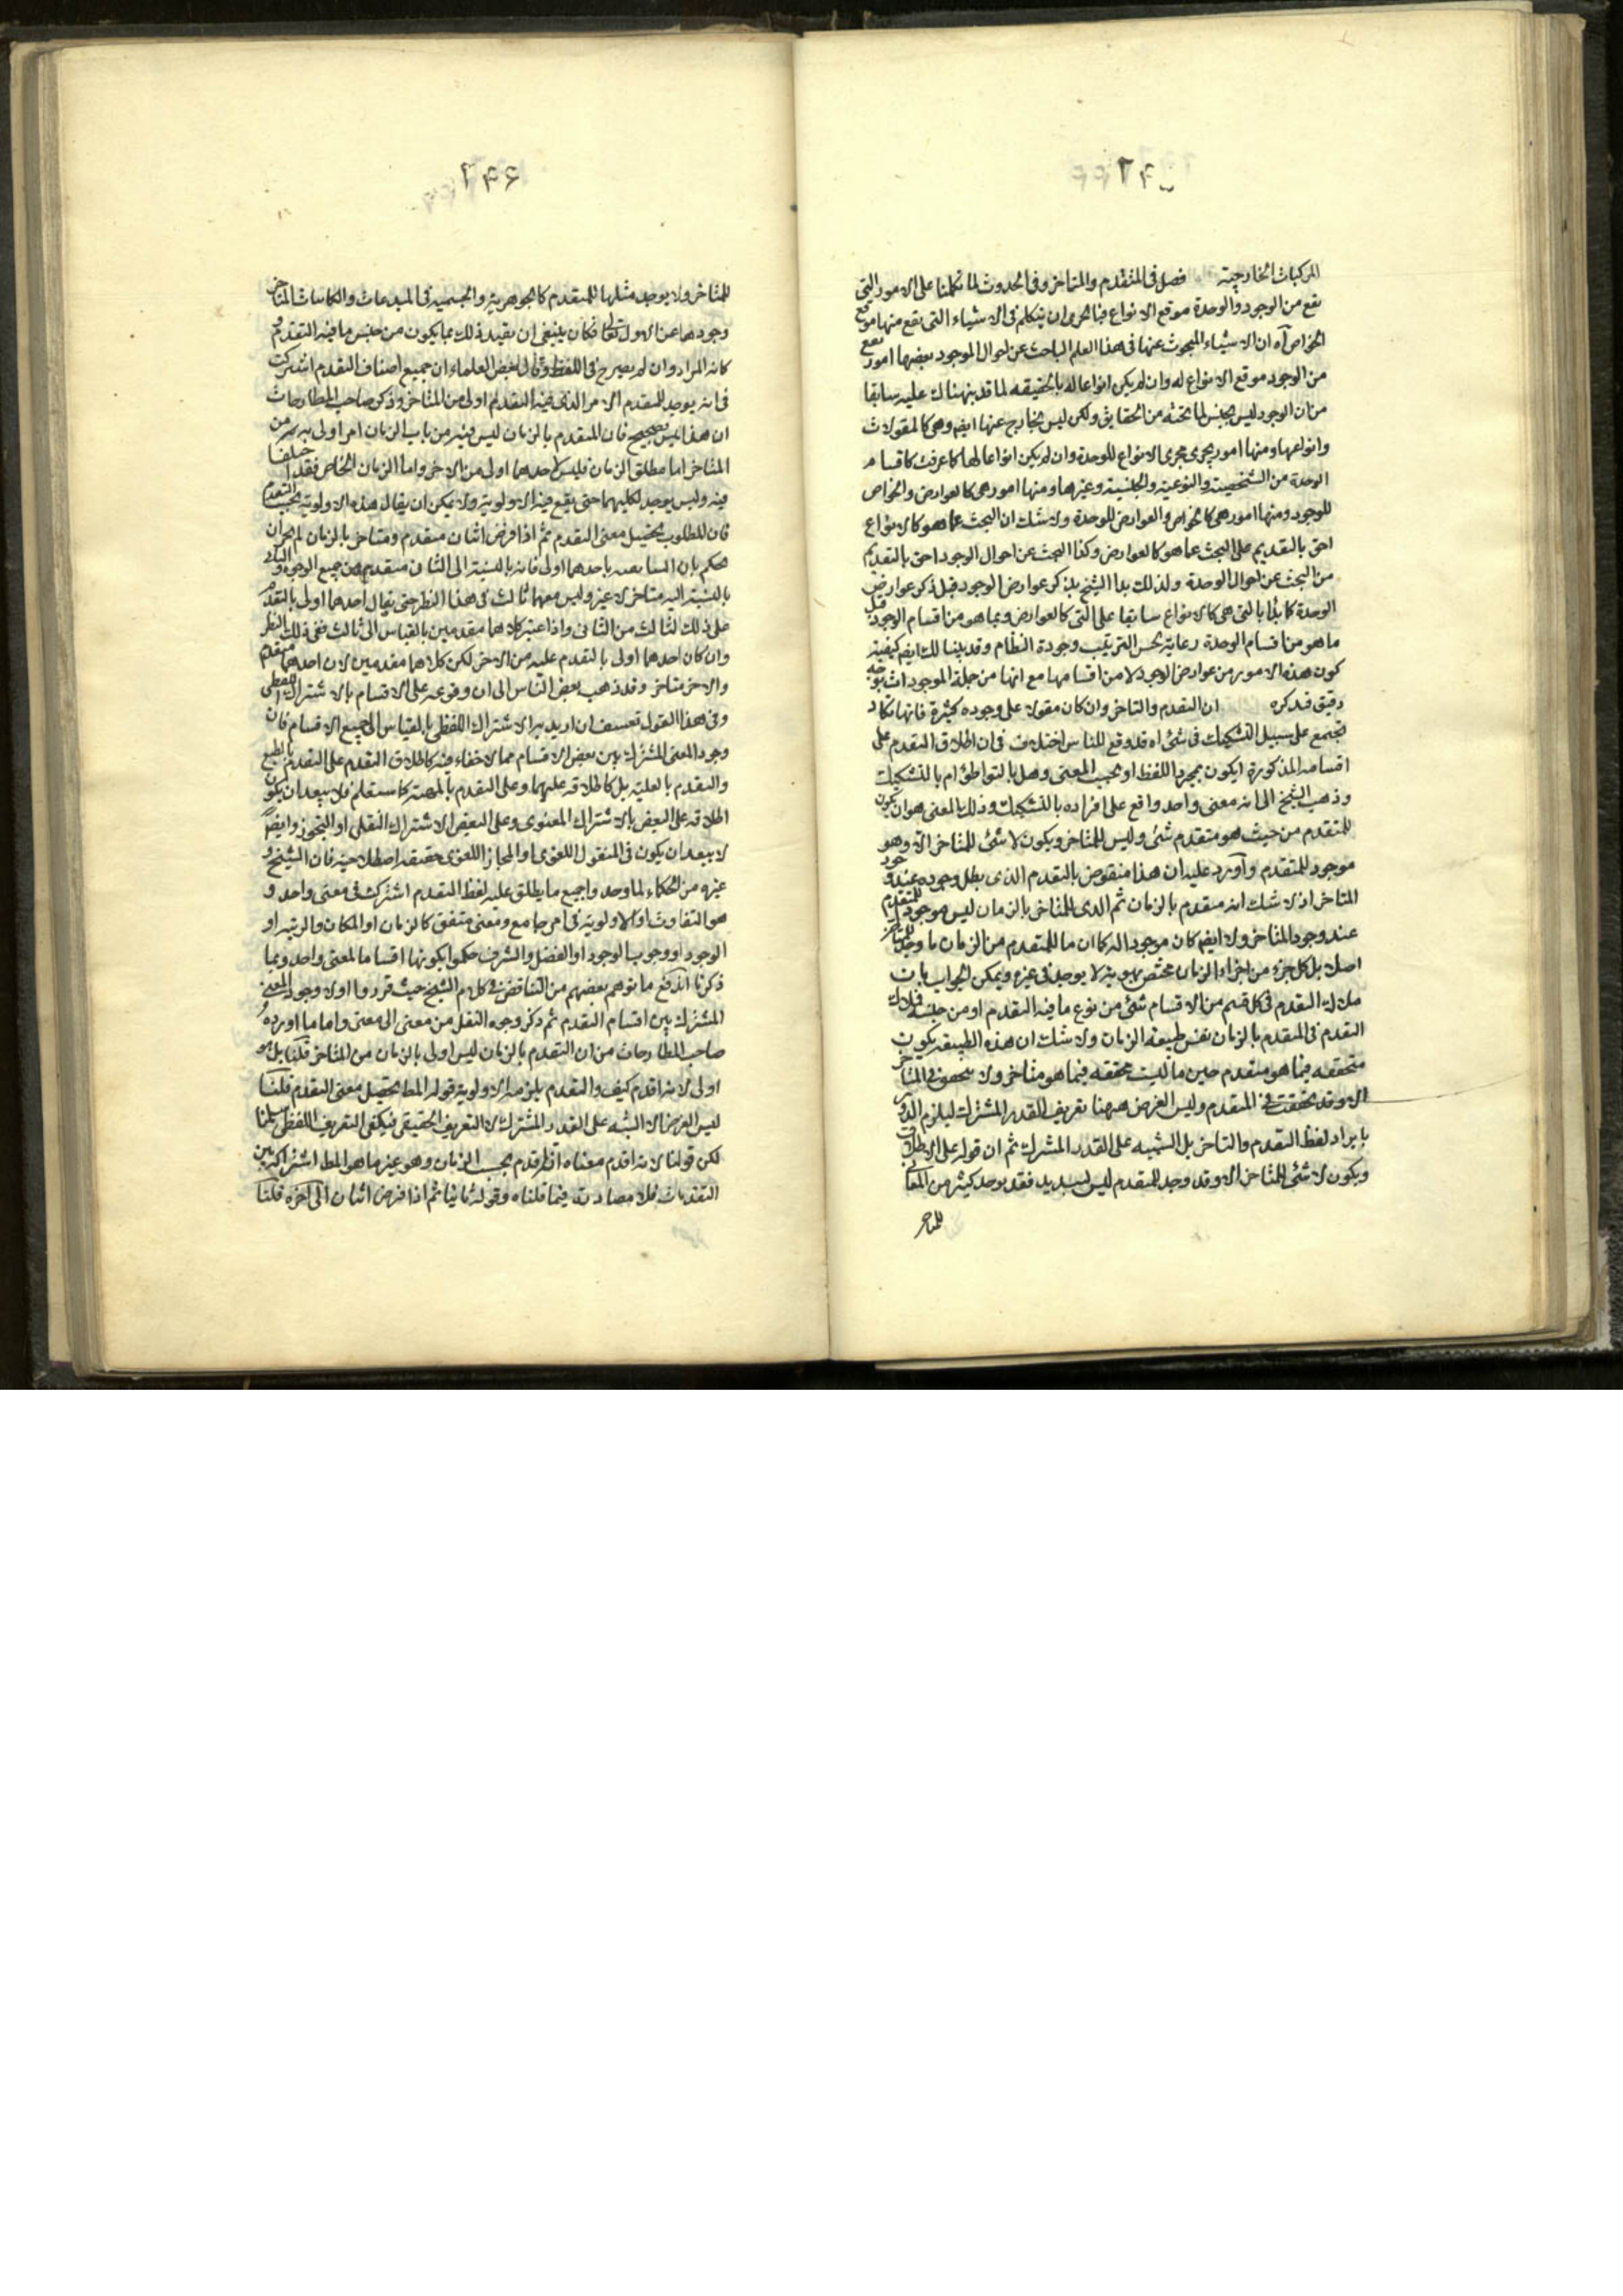 ٢٤٥
المركبات الخارجية فصل فى المتقدم والمتاخر وفى الحدوث لما تكلمنا على الامور التى
تقع من الوجود والوحدة موقع الانواع فبالحرى ان نتكلم فى الاشياء التى تقع منها موقع
الخواص آه ان الاشياء المبحوث عنها فى هذا العلم الباحث عن احوال الموجود بعضها امور تقع
من الوجود موقع الانواع له وان لم يكن انواعا له بالحقيقه لما قد بنهناك عليه سابقا
من ان الوجود ليس بجنس لما تحته من الحقايق ولكن ليس بخارج عنها ايضا وهى كالمقولات
وانواعها ومنها امور يجرى مجرى الانواع للوحدة وان لم يكن انواعا لها كما عرفت كاقسام
الوحدة من الشخصية والنوعية والجنسية وغيرها ومنها امور هى كالعوارض والخواص
للوجود ومنها امور هى كالخواص والعوارض للوحدة ولا شك ان البحث عما هو كالانواع
احق بالتقديم على البحث عما هو كالعوارض وكذا البحث عن احوال الوجود احق بالتقديم
من البحث عن احوال الوحدة ولذلك بدا الشيخ بذكر عوارض الوجود قبل ذكر عوارض
الوحدة كما بدا بالتى هى كالانواع سابقا على التى كالعوارض وبما هو من اقسام الوجود قبل
ما هو من اقسام الوحدة رعاية لحسن الترتيب وجودة النظام وقد بينا لك ايضا كيفية
كون هذه الامور من عوارض الوجود لا من اقسامها مع انها من جملة الموجودات بوجه
دقيق فتذكره ان التقدم والتاخر وان كان مقولا على وجوه كثيرة فانها تكاد
تجتمع على سبيل التشكيك فى شئ اه قد وقع للناس اختلاف فى ان اطلاق التقدم على
اقسامه المذكورة ايكون بمجرد اللفظ او بحسب المعنى وهل بالتواطؤ ام بالتشكيك
وذهب الشيخ الى انه معنى واحد واقع على افراده بالتشكيك وذلك المعنى هو ان يكون
للمتقدم من حيث هو متقدم شئ وليس للمتاخر ويكون لا شئ للمتاخر الا وهو
موجود للمتقدم وآورد عليه ان هذا منقوض بالتقدم الذى بطل وجوده عند وجود
المتاخر اذ لا شك انه متقدم بالزمان ثم الذى للمتاخر بالزمان ليس موجودا للمتقدم
عند وجود المتاخر ولا ايضا كان موجودا له كما ان ما للمتقدم من الزمان ما وجد للمتاخر
اصلا بل كل جزء من اجزاء الزمان مختص بهوية لا يوجد فى غيره ويمكن الجواب بان
ملاك التقدم فى كل قسم من الاقسام شئ من نوع ما فيه التقدم او من جنسه فملاك
التقدم فى المتقدم بالزمان نفس طبيعة الزمان ولا شك ان هذه الطبيعة يكون
متحققه فيما هو متقدم حين ما ليست متحققه فيما هو متاخر ولا يتحقق فى المتاخر
الا وقد تحققت فى المتقدم وليس الغرض ههنا تعريف القدر المشترك ليلزم الدور
بايراد لفظ التقدم والتاخر بل التنبيه على القدر المشترك ثم ان قوله على الاطلاق
ويكون لا شئ للمتاخر الا وقد وجد للمتقدم ليس بسديد فقد يوجد كثير من المعانى
للمتاخر
٢٤٦
للمتاخر ولا يوجد مثلها للمتقدم كالجوهرية والجسمية فى المبدعات والكاينات المتاخر
وجودها عن الاول تعالى فكان ينبغى ان يقيد ذلك بما يكون من جنس ما فيه التقدم و
كانه المراد وان لم يصرح فى اللفظ وقال بعض العلماء ان جميع اصناف التقدم اشتركت
فى انه يوجد للمتقدم الامر الذى فيه التقدم اولى من المتاخر وذكر صاحب المطارحات
ان هذا ليس بصحيح فان المتقدم بالزمان ليس فيه من باب الزمان امر اولى به من
المتاخر اما مطلق الزمان فليس لاحدهما اولى من الاخر واما الزمان الخاص فقد اختلفا
فيه وليس يوجد لكليهما حتى يقع فيه الاولوية ولا يمكن ان يقال هذه الاولوية بحسب التقدم
فان المطلوب تحصيل معنى التقدم ثم اذا فرض اثنان متقدم ومتاخر بالزمان لم يجز ان
يحكم بان السابقه باحدهما اولى فانه بالنسبة الى الثانى متقدم من جميع الوجوه والثانى
بالنسبة اليه متاخر لا غير وليس معهما ثالث فى هذا النظر حتى يقال احدهما اولى بالتقدم
على ذلك الثالث من الثانى واذا اعتبر كلاهما مقدمين بالقياس الى ثالث ففى ذلك النظر
وان كان احدهما اولى بالتقدم عليه من الاخر لكن كلاهما مقدمين لان احدهما متقدم
والاخر متاخر وقد ذهب بعض الناس الى ان وقوعه على الاقسام بالاشتراك اللفظى
وفى هذا القول تعسف ان اريد به الاشتراك اللفظى بالقياس الى جميع الاقسام فان
وجود المعنى المشترك بين بعض الاقسام مما لا خفاء فيه كاطلاق التقدم على التقدم بالطبع
والتقدم بالعلية بل كاطلاقه عليهما وعلى التقدم بالمهية كما ستعلم فلا يبعد ان يكون
اطلاقه على البعض بالاشتراك المعنوى وعلى البعض الاشتراك النقلى او التجوز وايضا
لا يبعد ان يكون فى المنقول اللغوى او المجاز اللغوى حقيقه اصطلاحية فان الشيخ و
غيره من الحكماء لما وجدوا جميع ما يطلق عليه لفظ التقدم اشترك فى معنى واحد و
هو التفاوت او الاولوية فى امر جامع ومعنى متفق كالزمان او المكان والرتبة او
الوجود او وجوب الوجود او الفضل والشرف حكموا بكونها اقساما لمعنى واحد وبما
ذكرنا اندفع ما توهم بعضهم من التناقض فى كلام الشيخ حيث قرروا اولا وجود المعنى
المشترك بين اقسام التقدم ثم ذكر وجوه النقل من معنى الى معنى واما ما اورده
صاحب المطارحات من ان التقدم بالزمان ليس اولى بالزمان من المتاخر قلنا بل هو
اولى لانه اقدم كيف والتقدم يلزمه الاولوية قوله المط تحصيل معنى التقدم قلنا
ليس الغرض الا التنبه على القدر المشترك لا التعريف الحقيقى فيكفى التعريف اللفظى سلمنا
لكن قولنا لانه اقدم معناه انه اقدم بحسب الزمان وهو غير ما هو المط اشتراكه بين
التقدمات فلا مصادرة فيما قلناه وقوله ثانيا ثم اذا فرض اثنان الى آخره قلنا